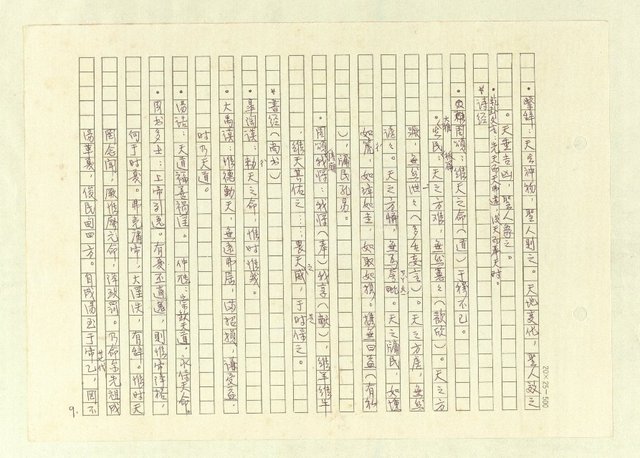 繫辭：天生神物，聖人則之。天地變化，聖人效之
。天垂吉凶，聖人象之。
先天而天弗違，後天而奉天時。
*詩經
周頌：維天之命（道）于穆不已。
天之方難，無然憲憲（欣欣）。天之方
蹶，無然泄泄（多言）。天之方虐，無然
謔謔。天之方懠，無為夸毗。天之牖民，如壎
如篪，如璋如圭，如取如攜。攜無曰益（有
），牖民孔易。
周頌我將：我將（奉）我享（獻），維羊維牛
，維天其佑之……畏天威，于時保之。
*書經（尚書）
皋陶謨：勅天之命，惟時惟幾。
大禹謨：惟德動天，無遠弗屆，滿招損，謙受益，
時乃天道。
湯誥：天道福善禍淫。仲虺：欽崇天道，永保天命。
周書多士：上帝引逸。有夏不適逸，則惟帝降格，
嚮于時夏。弗克庸帝，大淫泆，有辭。惟時天
罔念聞，厥惟廢元命，降致罰。乃命爾先祖成
湯革夏，俊民甸四方。自成湯至于帝乙，罔不
9.
20×25=500